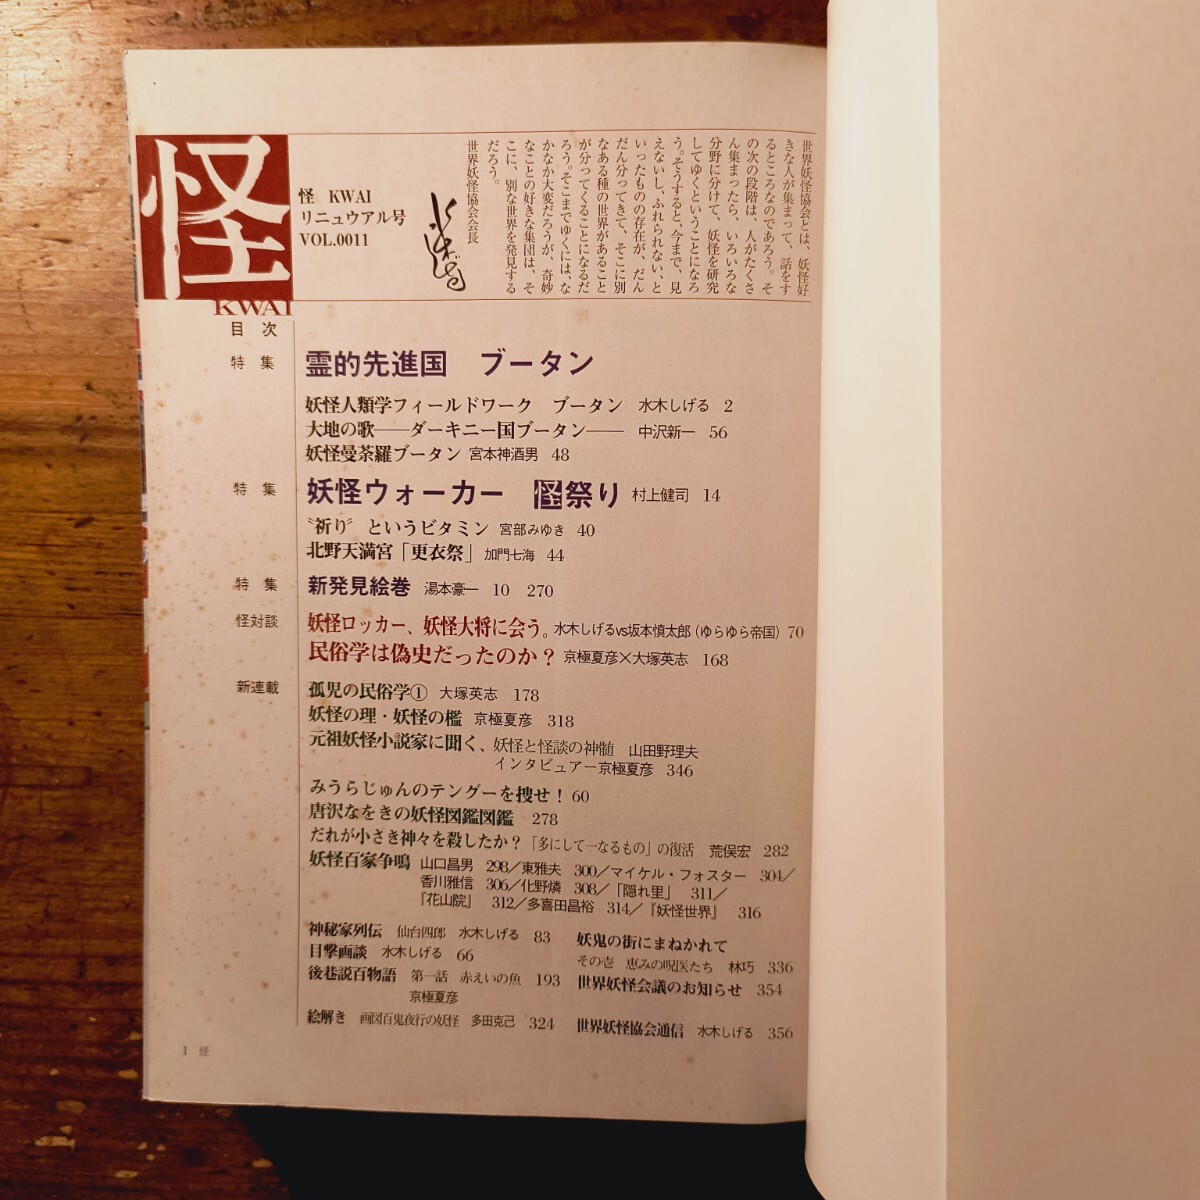 怪
KWAI
怪 KWAI
リニュウアル号
VOL.0011
世界妖怪協会とは、妖怪好
きな人が集まって、話をす
るところなのであろう。そ
の次の段階は、人がたくさ
ん集まったら、いろいろな
分野に分けて、妖怪を研究
してゆくということになろ
う。そうすると、今まで、見
えないし、ふれられない、と
いったものの存在が、だん
だん分ってきて、そこに別
なある種の世界があること
が分ってくることになるだ
ろう。そこまでゆくには、な
かなか大変だろうが、奇妙
なことの好きな集団は、そ
こに、別な世界を発見する
だろう。
世界妖怪協会会長
目 次
特 集 霊的先進国 ブータン
妖怪人類学フィールドワーク ブータン 水木しげる 2
大地の歌──ダーキニー国ブータン── 中沢新一 56
妖怪曼荼羅ブータン 宮本神酒男 48
特 集 妖怪ウォーカー 怪祭り 村上健司 14
〝祈り〞というビタミン 宮部みゆき 40
北野天満宮「更衣祭」 加門七海 44
特 集 新発見絵巻 湯本豪一 10 270
怪対談 妖怪ロッカー、妖怪大将に会う。水木しげるvs坂本慎太郎(ゆらゆら帝国) 70
民俗学は偽史だったのか? 京極夏彦×大塚英志 168
新連載 孤児の民俗学① 大塚英志 178
妖怪の理・妖怪の檻 京極夏彦 318
元祖妖怪小説家に聞く、妖怪と怪談の神髄 山田野理夫
インタビュアー京極夏彦 346
みうらじゅんのテングーを捜せ! 60
唐沢なをきの妖怪図鑑図鑑 278
だれが小さき神々を殺したか?「多にして一なるもの」の復活 荒俣宏 282
妖怪百家争鳴 山口昌男 298/東雅夫 300/マイケル・フォスター 304/
香川雅信 306/化野燐 308/「隠れ里」 311/
『花山院』 312/多喜田昌裕 314/『妖怪世界』 316
神秘家列伝 仙台四郎 水木しげる 83
目撃画談 水木しげる 66
後巷説百物語 第一話 赤えいの魚 193
京極夏彦
絵解き 画図百鬼夜行の妖怪 多田克己 324
妖鬼の街にまねかれて
その壱 恵みの呪医たち 林巧 336
世界妖怪会議のお知らせ 354
世界妖怪協会通信 水木しげる 356
1 怪